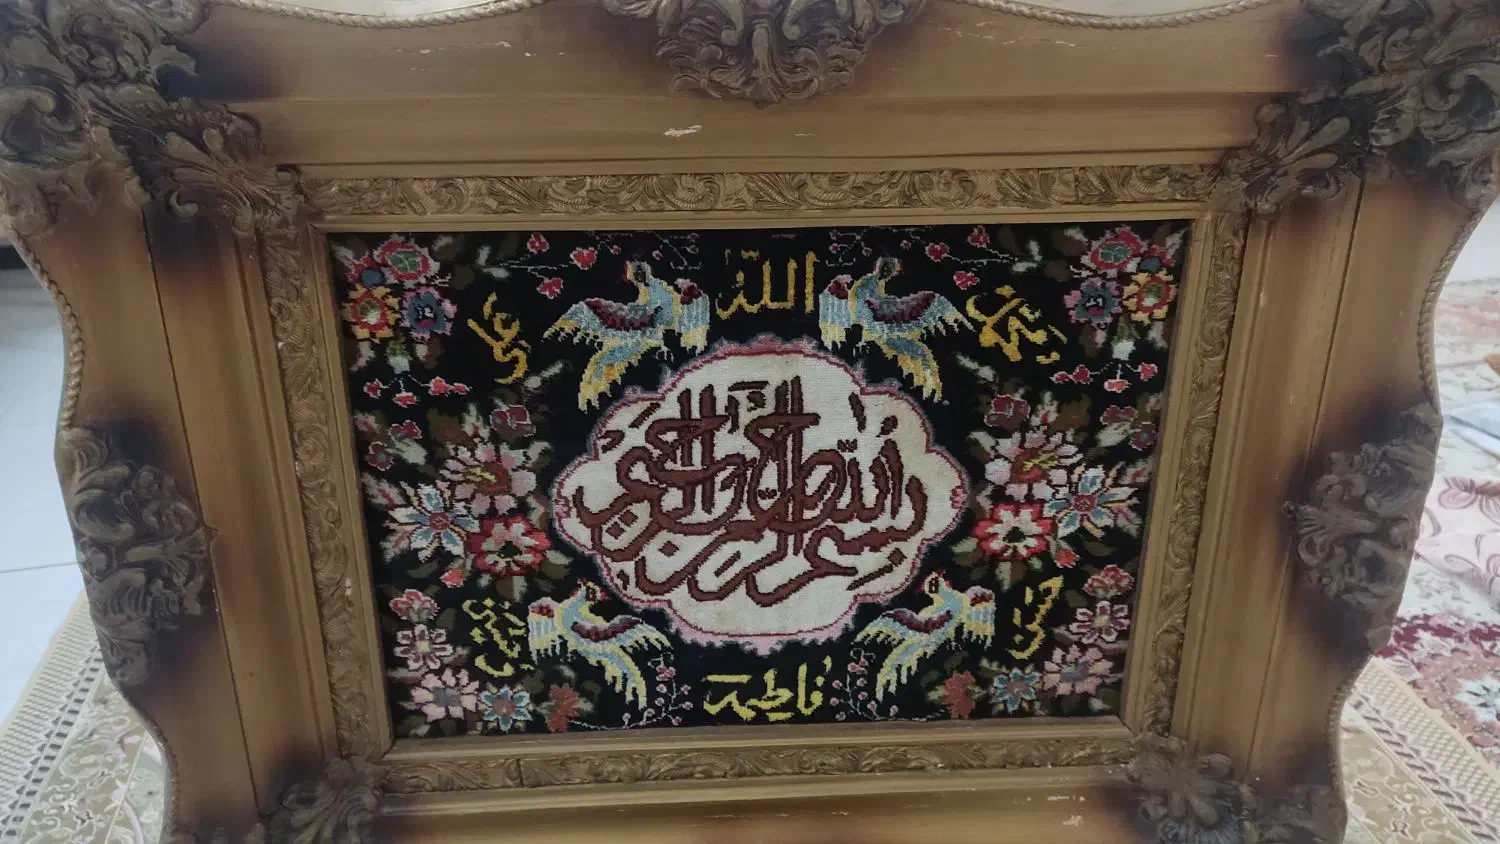 الله
محمد
علی
بسم الله الرحمن الرحیم
حسن
حسین
فاطمه